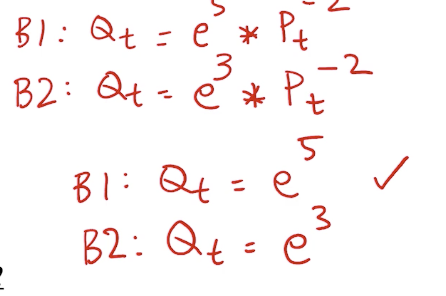 B1: Qt = e^5 * Pt^-2
B2: Qt = e^3 * Pt^-2
B1: Qt = e^5 ✓
B2: Qt = e^3